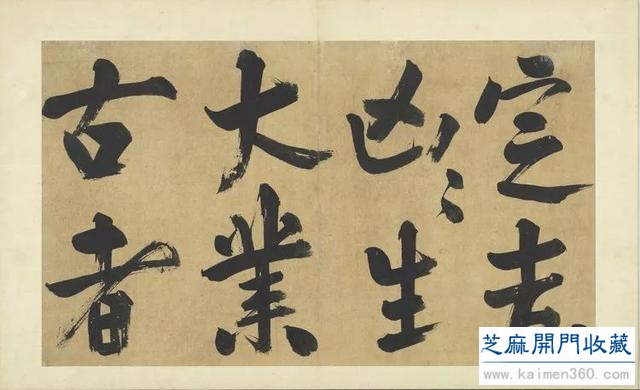 定吉
凶〻生
大業
古者
芝麻開門收藏
www.kaimen360.com